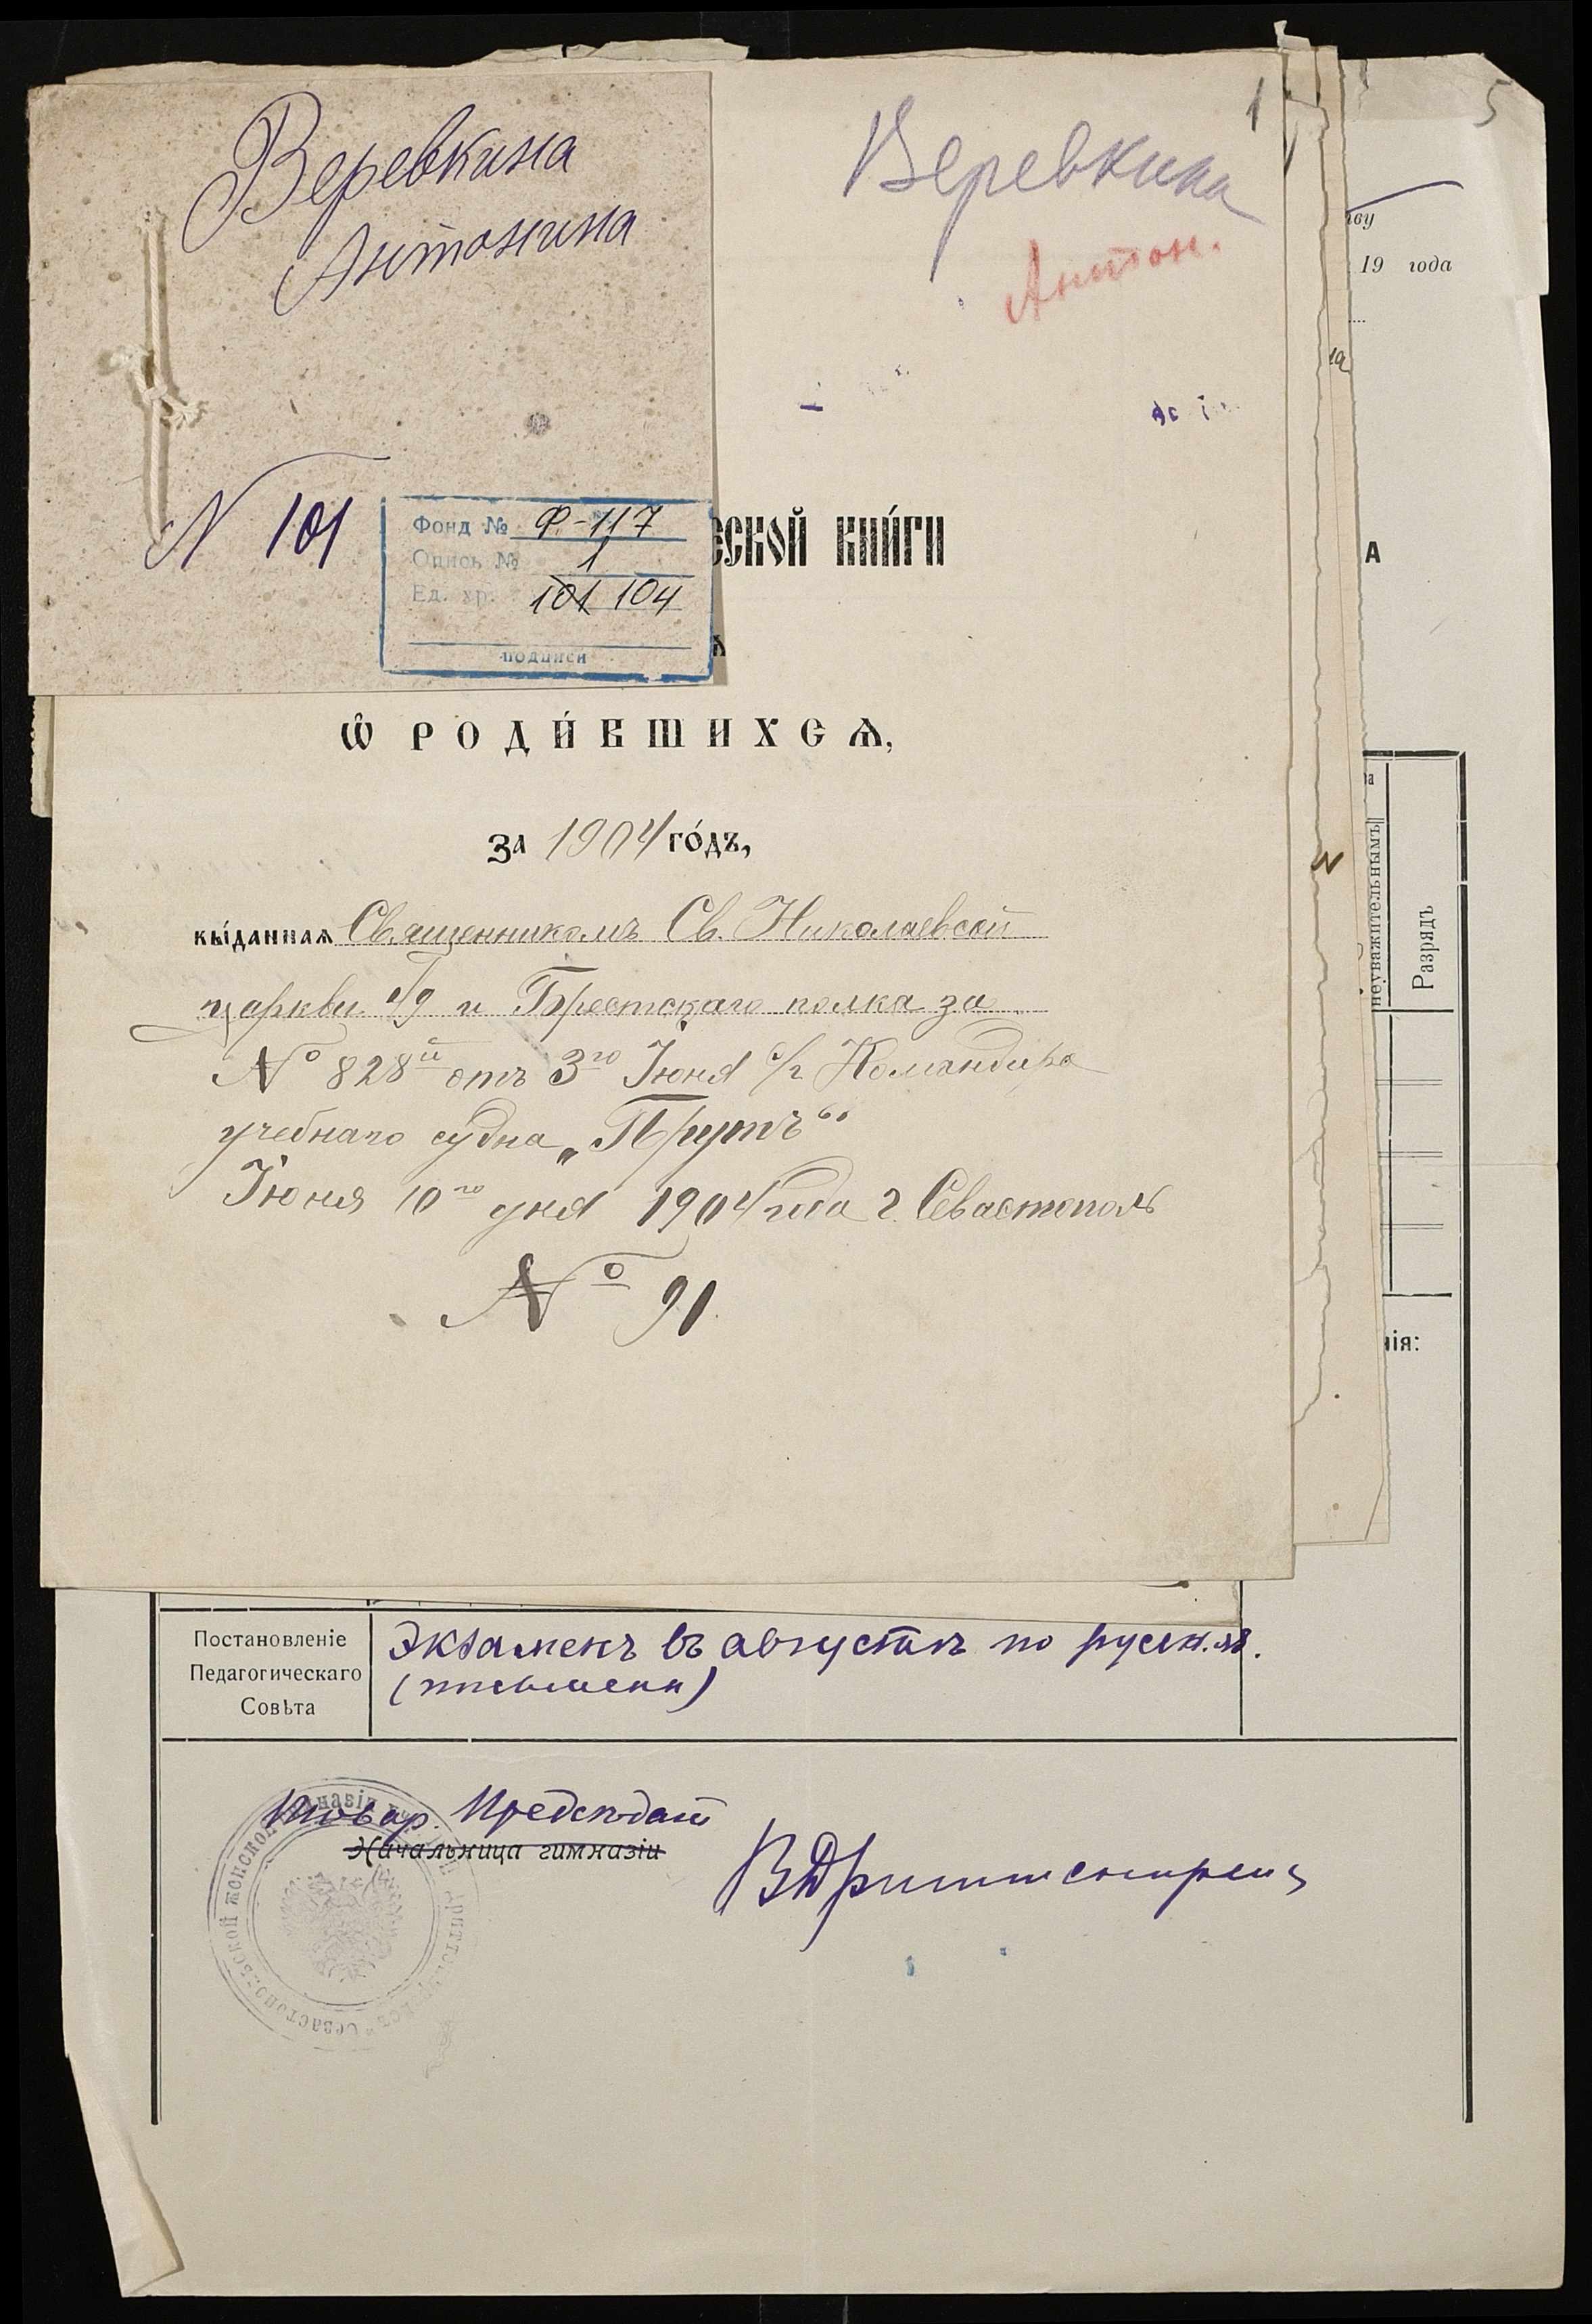 Веревкина
Антонина
N 101
Фонд № Ф-117
Опись № 1
Ед. хр. 101 104
подписи
1
Веревкина
Антон.
5
19 года
ской кни́ги
А
Ѡ РОДИ́ВШИХСѦ,
за 1904 го́дъ,
вы́даннаѧ Священникомъ Св. Николаевской
церкви 49 п Брестскаго полка за
№ 828й отъ 3го Іюня с/г Командира
учебнаго судна „Прутъ“
Іюня 10го дня 1904 года г. Севастополь
№ 91.
неуважительнымъ
Разрядъ
нія:
Постановленіе
Педагогическаго
Совѣта
Экзаменъ въ августѣ по русск. яз.
(письменн)
Товар. Предсѣдат
Начальница гимназіи
Севастопольской женской гимназіи